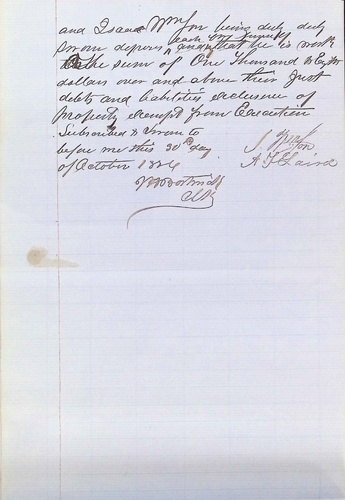 and Isaac being duly duly
each for himself
sworn deposes and that he is worth
the sum of One Thousand &
dollars over and above their Just
debts and liabilities exclusive of
Property exempt from Execution
Subscribed & Sworn to
before me this 30th day
of October 1884
J.
A F Laird
Clk